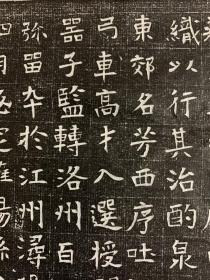 織以行其治酌泉
東郊名芳西序吐
弓車高才入選授
器子監轉洛州百
弥留卒於江州潯
四月